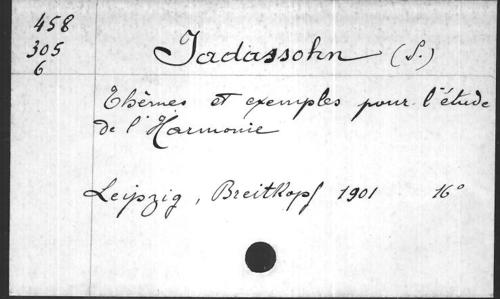 458
305
6
Jadassohn (S.)
Thèmes et exemples pour l'étude
de l'Harmonie
Leipzig, Breitkopf 1901 16°